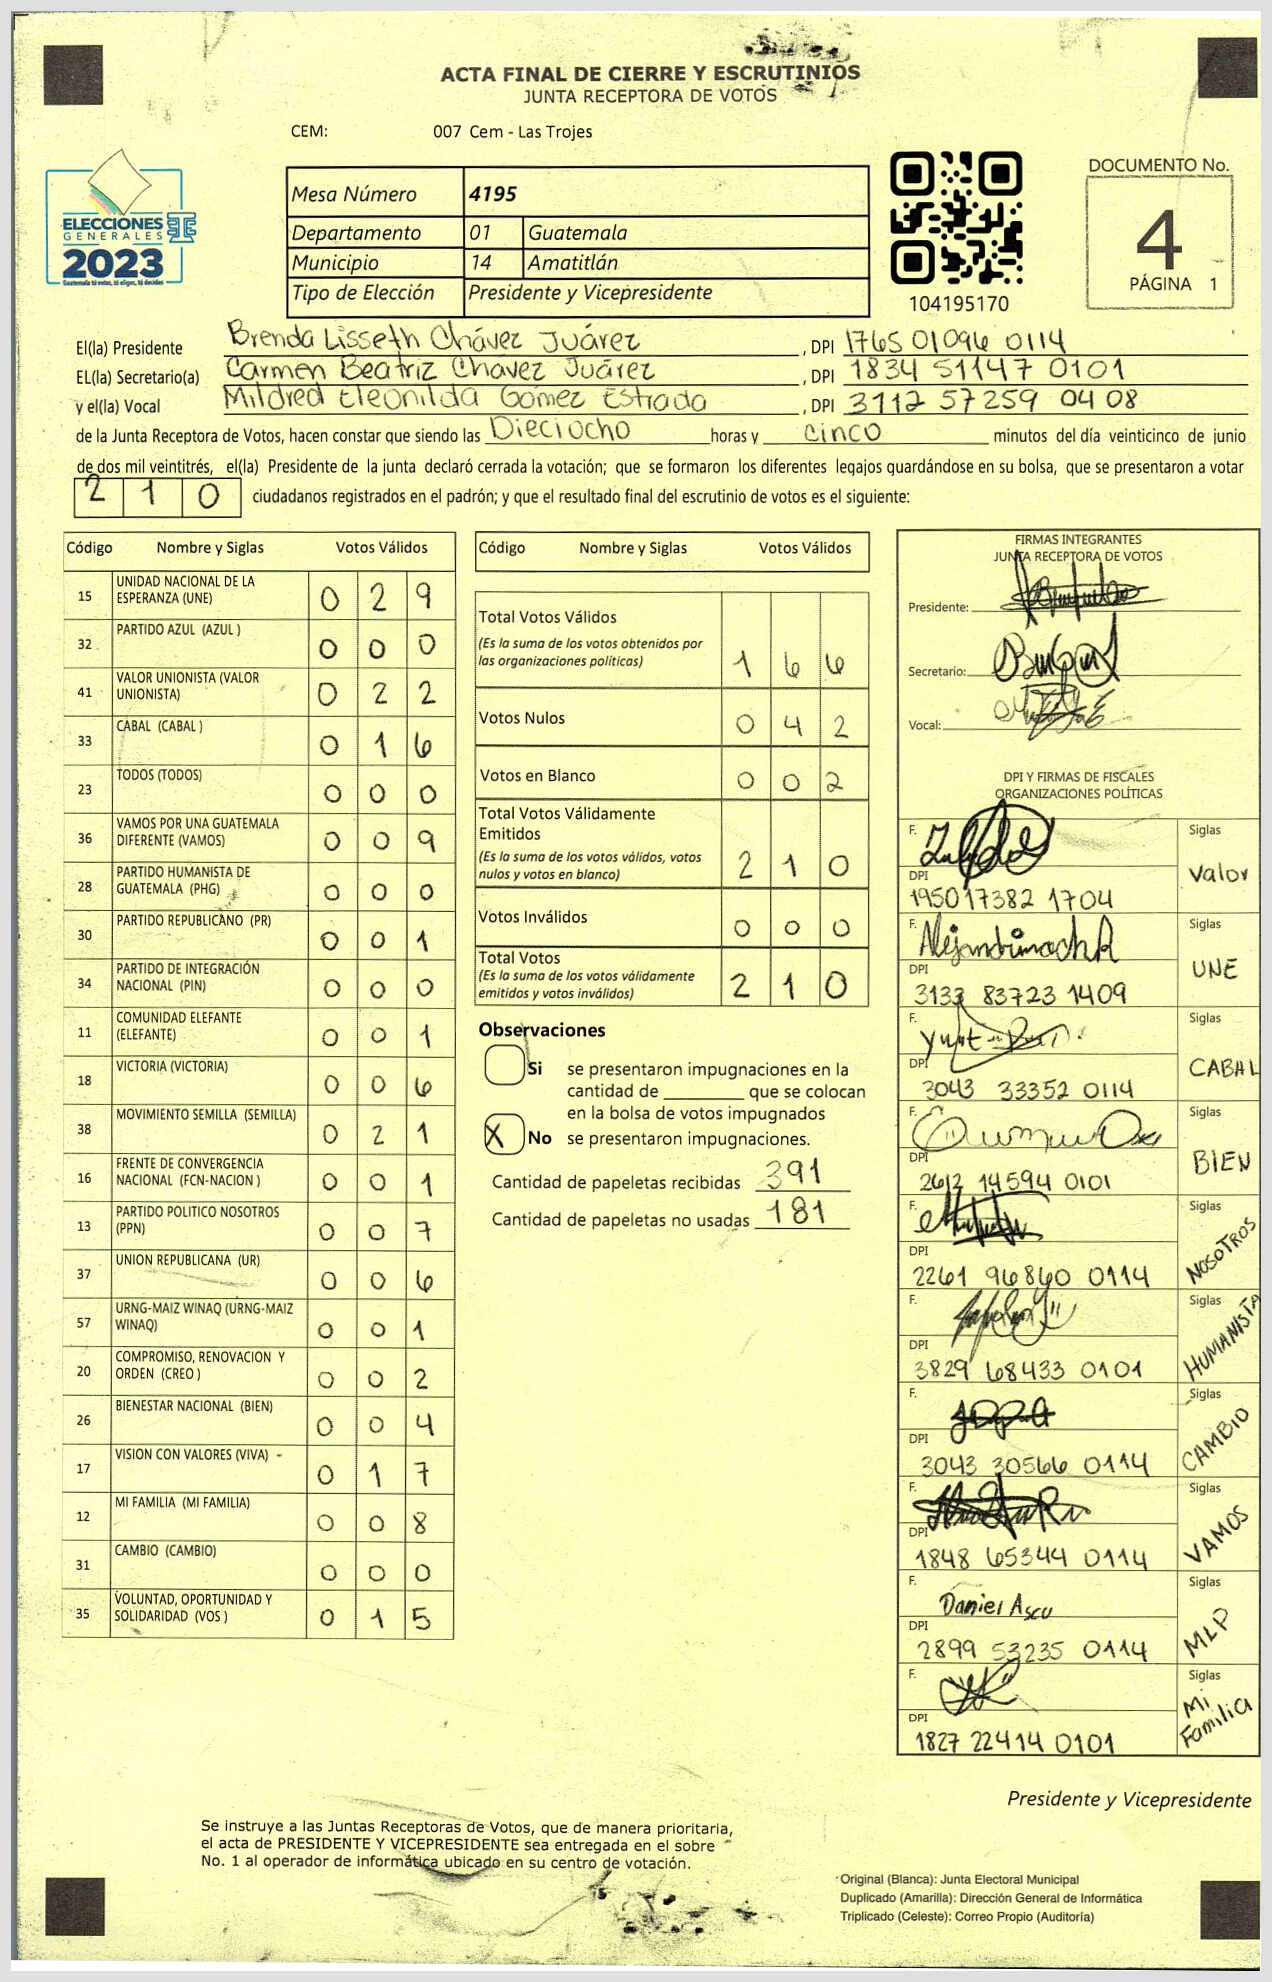 ACTA FINAL DE CIERRE Y ESCRUTINIOS
JUNTA RECEPTORA DE VOTOS
CEM: 007 Cem - Las Trojes
ELECCIONES
GENERALES
2023
Guatemala tú votas, tú eliges, tú decides
Mesa Número 4195
Departamento 01 Guatemala
Municipio 14 Amatitlán
Tipo de Elección Presidente y Vicepresidente
104195170
DOCUMENTO No.
4
PÁGINA 1
El(la) Presidente Brenda Lisseth Chávez Juárez, DPI 1765 01096 0114
EL(la) Secretario(a) Carmen Beatriz Chávez Juárez, DPI 1834 51147 0101
y el(la) Vocal Mildred Eleonilda Gómez Estrada, DPI 3112 57259 0408
de la Junta Receptora de Votos, hacen constar que siendo las Dieciocho horas y cinco minutos del día veinticinco de junio
de dos mil veintitrés, el(la) Presidente de la junta declaró cerrada la votación; que se formaron los diferentes legajos guardándose en su bolsa, que se presentaron a votar
210 ciudadanos registrados en el padrón; y que el resultado final del escrutinio de votos es el siguiente:
Código Nombre y Siglas Votos Válidos
15 UNIDAD NACIONAL DE LA ESPERANZA (UNE) 0 2 9
32 PARTIDO AZUL (AZUL ) 0 0 0
41 VALOR UNIONISTA (VALOR UNIONISTA) 0 2 2
33 CABAL (CABAL ) 0 1 6
23 TODOS (TODOS) 0 0 0
36 VAMOS POR UNA GUATEMALA DIFERENTE (VAMOS) 0 0 9
28 PARTIDO HUMANISTA DE GUATEMALA (PHG) 0 0 0
30 PARTIDO REPUBLICANO (PR) 0 0 1
34 PARTIDO DE INTEGRACIÓN NACIONAL (PIN) 0 0 0
11 COMUNIDAD ELEFANTE (ELEFANTE) 0 0 1
18 VICTORIA (VICTORIA) 0 0 6
38 MOVIMIENTO SEMILLA (SEMILLA) 0 2 1
16 FRENTE DE CONVERGENCIA NACIONAL (FCN-NACION ) 0 0 1
13 PARTIDO POLITICO NOSOTROS (PPN) 0 0 7
37 UNION REPUBLICANA (UR) 0 0 6
57 URNG-MAIZ WINAQ (URNG-MAIZ WINAQ) 0 0 1
20 COMPROMISO, RENOVACION Y ORDEN (CREO ) 0 0 2
26 BIENESTAR NACIONAL (BIEN) 0 0 4
17 VISION CON VALORES (VIVA) 0 1 7
12 MI FAMILIA (MI FAMILIA) 0 0 8
31 CAMBIO (CAMBIO) 0 0 0
35 VOLUNTAD, OPORTUNIDAD Y SOLIDARIDAD (VOS ) 0 1 5
Código Nombre y Siglas Votos Válidos
Total Votos Válidos
(Es la suma de los votos obtenidos por
las organizaciones políticas) 1 6 6
Votos Nulos 0 4 2
Votos en Blanco 0 0 2
Total Votos Válidamente
Emitidos
(Es la suma de los votos válidos, votos
nulos y votos en blanco) 2 1 0
Votos Inválidos 0 0 0
Total Votos
(Es la suma de los votos válidamente
emitidos y votos inválidos) 2 1 0
Observaciones
Si se presentaron impugnaciones en la
cantidad de ________ que se colocan
en la bolsa de votos impugnados
X No se presentaron impugnaciones.
Cantidad de papeletas recibidas 391
Cantidad de papeletas no usadas 181
FIRMAS INTEGRANTES
JUNTA RECEPTORA DE VOTOS
Presidente:
Secretario:
Vocal:
DPI Y FIRMAS DE FISCALES
ORGANIZACIONES POLÍTICAS
F. Siglas
DPI Valor
195017382 1704
F. Siglas
DPI UNE
3133 83723 1409
F. Siglas
DPI CABAL
3043 33352 0114
F. Siglas
DPI BIEN
2612 14594 0101
F. Siglas
DPI NOSOTROS
2261 96860 0114
F. Siglas
DPI HUMANISTA
3829 68433 0101
F. Siglas
DPI CAMBIO
3043 30566 0114
F. Siglas
DPI VAMOS
1848 65344 0114
F. Daniel Ascu Siglas
DPI MLP
2899 53235 0114
F. Siglas
DPI Mi Familia
1827 22414 0101
Presidente y Vicepresidente
Se instruye a las Juntas Receptoras de Votos, que de manera prioritaria,
el acta de PRESIDENTE Y VICEPRESIDENTE sea entregada en el sobre
No. 1 al operador de informática ubicado en su centro de votación.
Original (Blanca): Junta Electoral Municipal
Duplicado (Amarilla): Dirección General de Informática
Triplicado (Celeste): Correo Propio (Auditoría)